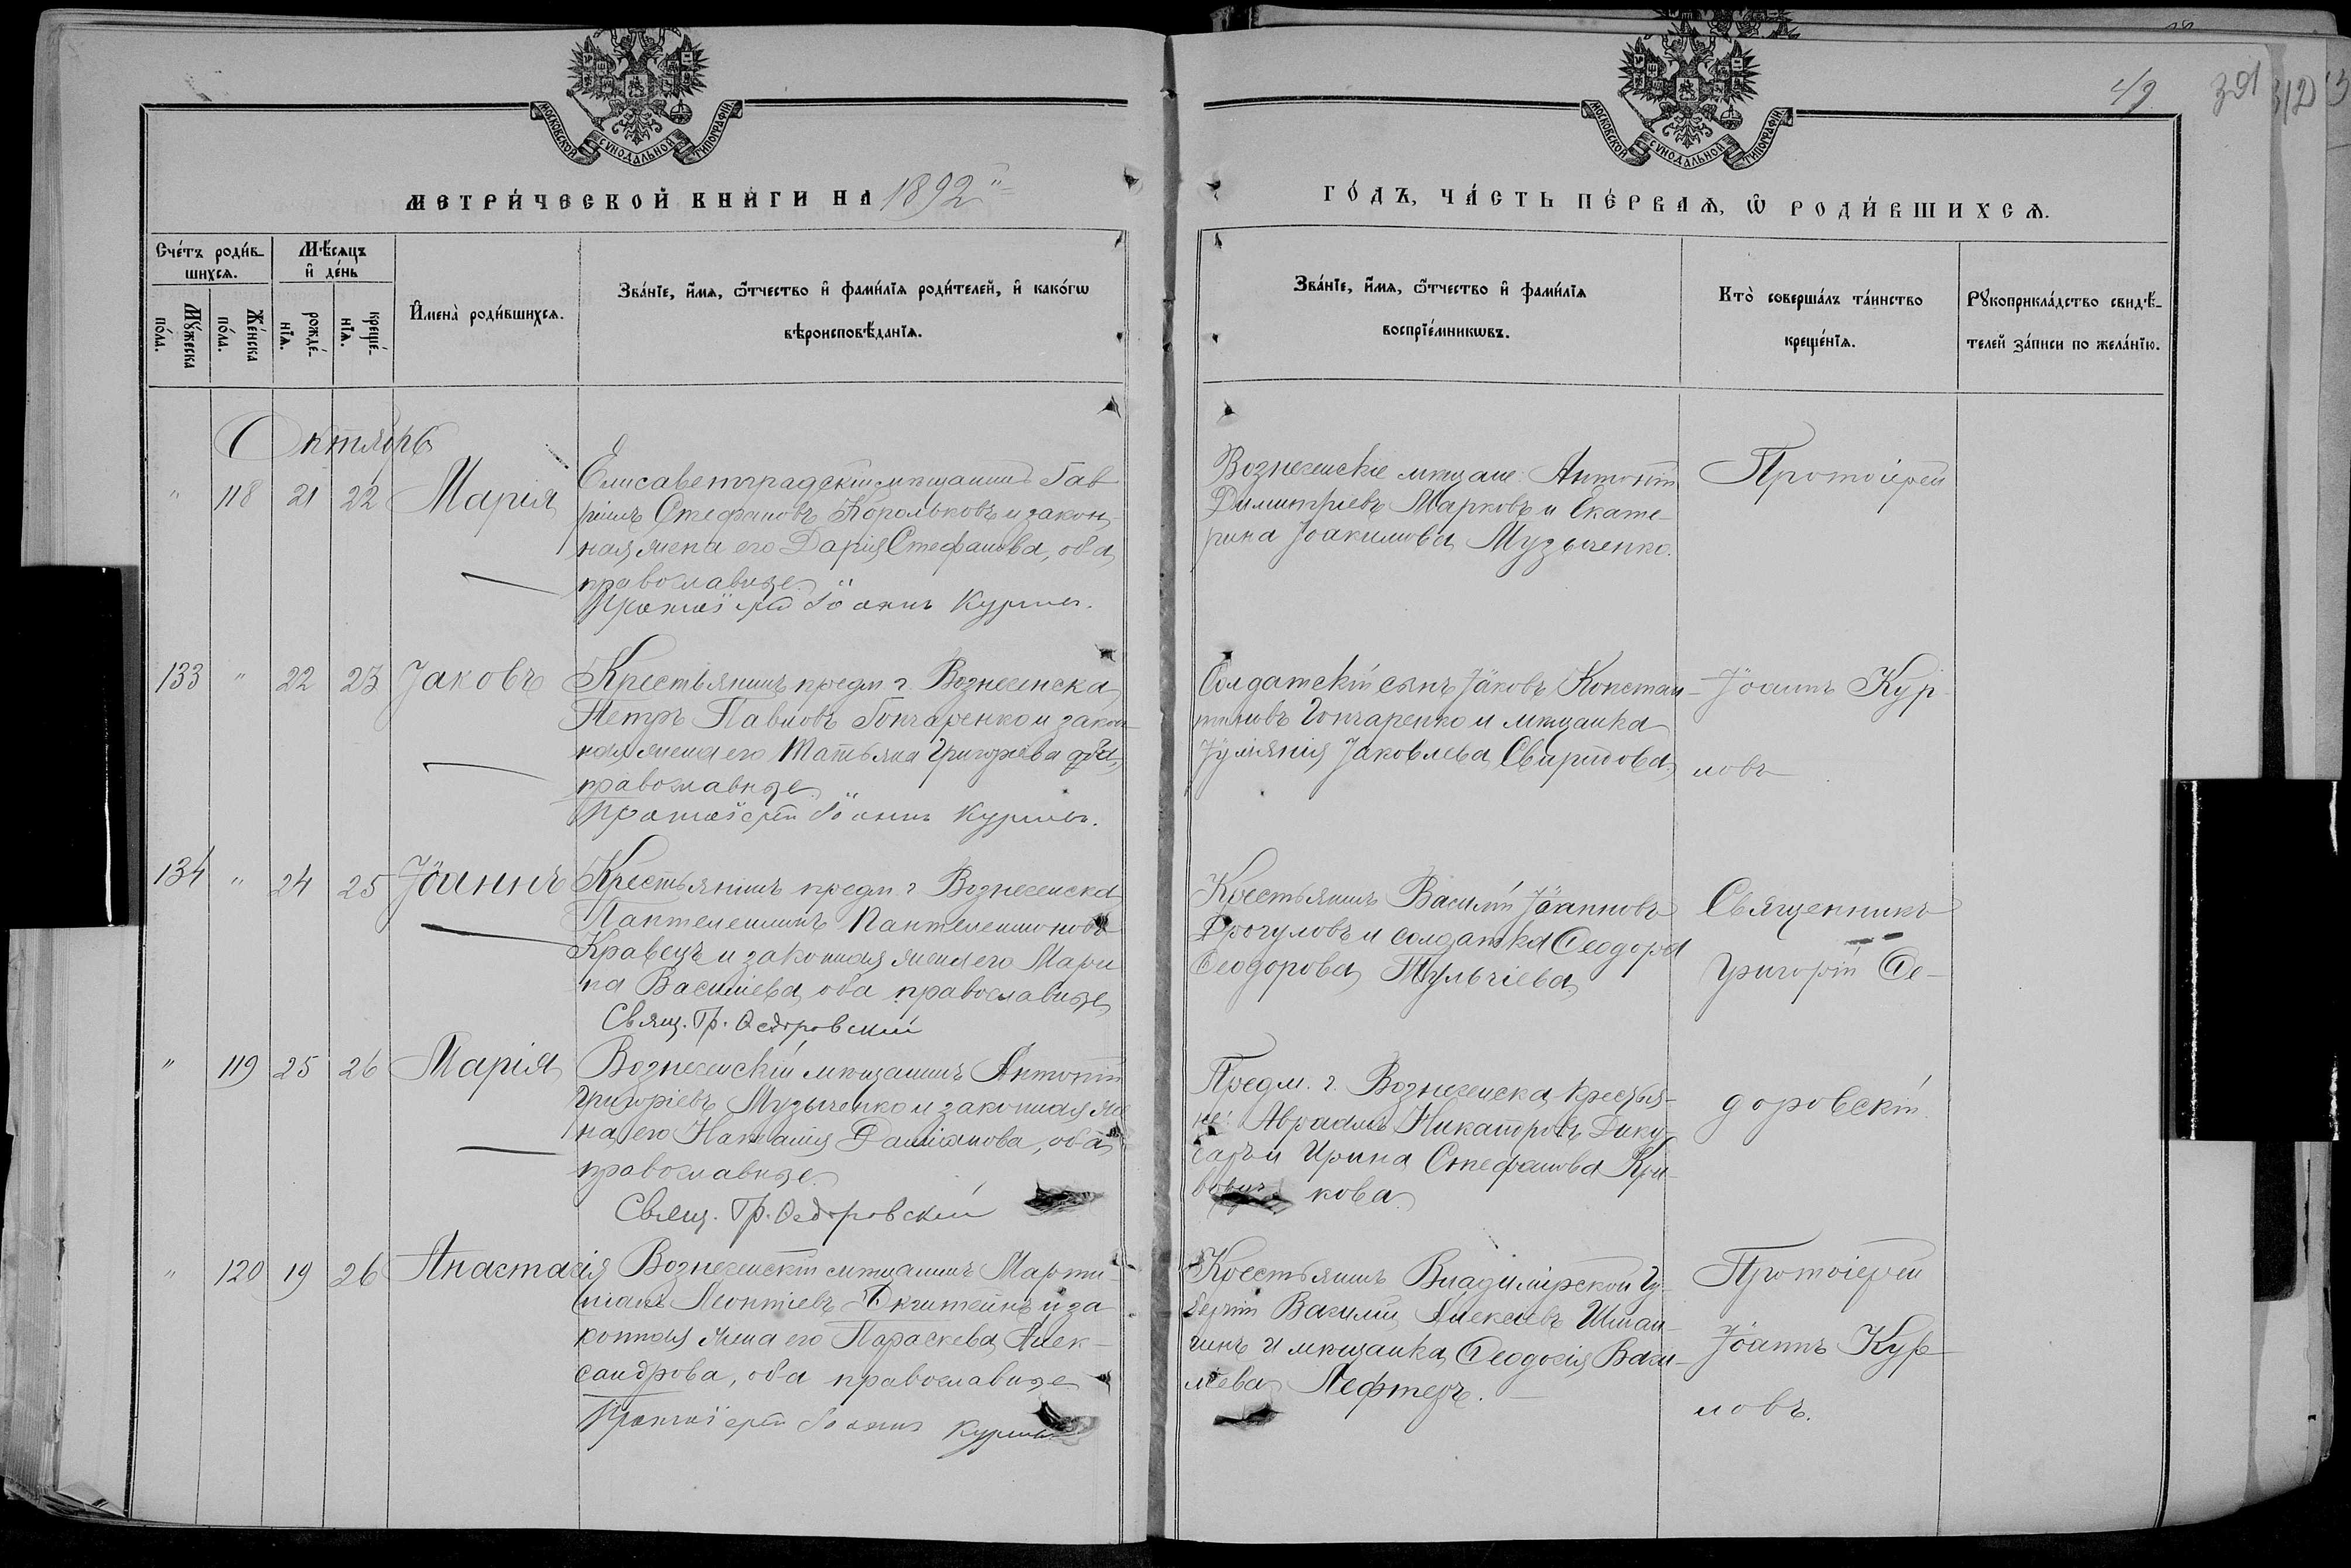 49 391 312
МОСКОВСКОЙ СѴНОДАЛЬНОЙ ТИПОГРАФІИ
МОСКОВСКОЙ СѴНОДАЛЬНОЙ ТИПОГРАФІИ
МЕТРИ́ЧЕСКОЙ КНИ́ГИ НА 1892й
ГО́ДЪ, ЧА́СТЬ ПЕ́РВАѦ, Ѡ РОДИ́ВШИХСѦ.
Сче́тъ роди́в-
шихсѧ.
Мꙋ́жеска
по́ла.
Же́нска
по́ла.
Мѣ́сѧцъ
и҆ де́нь
рожде́-
нїѧ.
креще́-
нїѧ.
И҆мена̀ роди́вшихсѧ.
Зва́нїе, и҆́мѧ, ѻ҆́тчество и҆ фами́лїѧ роди́телей, и҆ како́гѡ
вѣроисповѣ́данїѧ.
Зва́нїе, и҆́мѧ, ѻ҆́тчество и҆ фами́лїѧ
воспрїе́мникѡвъ.
Кто̀ соверша́лъ та́инство
креще́нїѧ.
Рꙋкоприкла́дство свидѣ́-
телей за́писи по жела́нїю.
Октябрь
" 118 21 22 Марія
Елисаветградскій мѣщанинъ Гав
ріилъ Стефановъ Корольковъ и закон-
ная жена его Дарія Стефанова, оба
православные.
Протоіерей Іоаннъ Курловъ.
Вознесенскіе мѣщане: Антоній
Димитріевъ Марковъ и Екате-
рина Іоакимова Музыченко.
Протоіерей
133 " 22 23 Іаковъ
Крестьянинъ предм. г. Вознесенска
Петръ Павловъ Гончаренко и закон-
ная жена его Татьяна Григорьева оба
православные.
Протоіерей Іоаннъ Курловъ.
Солдатскій сынъ Іаковъ Констан-
тиновъ Гончаренко и мѣщанка
Іуліянія Яковлева Свиридова
Іоаннъ Кур-
ловъ
134 " 24 25 Іоаннъ
Крестьянинъ предм. г. Вознесенска
Пантелеимонъ Пантелеимоновъ
Кравецъ и законная жена его Мари
на Василіева, оба православные
Свящ. Гр. Ѳедоровскій
Крестьянинъ Василій Іоанновъ
и солдатка Ѳеодора
Ѳеодорова Тульчіева
Священникъ
Григорій Ѳе-
доровскій.
" 119 25 26 Марія
Вознесенскій мѣщанинъ Антоній
Григоріевъ Музыченко и законная же
на его Наталія Даміанова, оба
православные.
Свящ. Гр. Ѳедоровскій
Предм. г. Вознесенска крестья-
не: Авраамъ Никаноровъ Дику-
саръ и Ирина Стефанова Кри-
кова.
" 120 19 26 Анастасія
Вознесенскій мѣщанинъ Марти-
ніанъ Леонтіевъ и за
конная жена его Параскева Алек-
сандрова, оба православные
Протоіерей Іоаннъ Курловъ
Крестьянинъ Владимірской гу-
берніи Василій Алексіевъ
и мѣщанка Ѳеодосія Васи-
ліева Лефтеръ.
Протоіерей
Іоаннъ Кур-
ловъ.